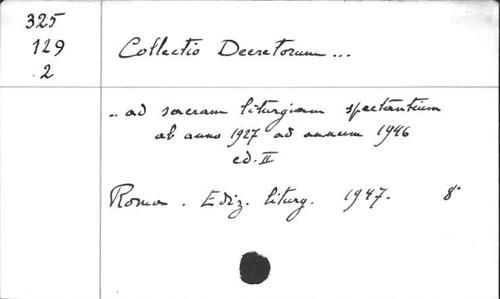 325
129
.2
Collectio Decretorum ...
.. ad sacram liturgiam spectantium
ab anno 1927 ad annum 1946
ed. II
Roma. Ediz. liturg. 1947. 8°